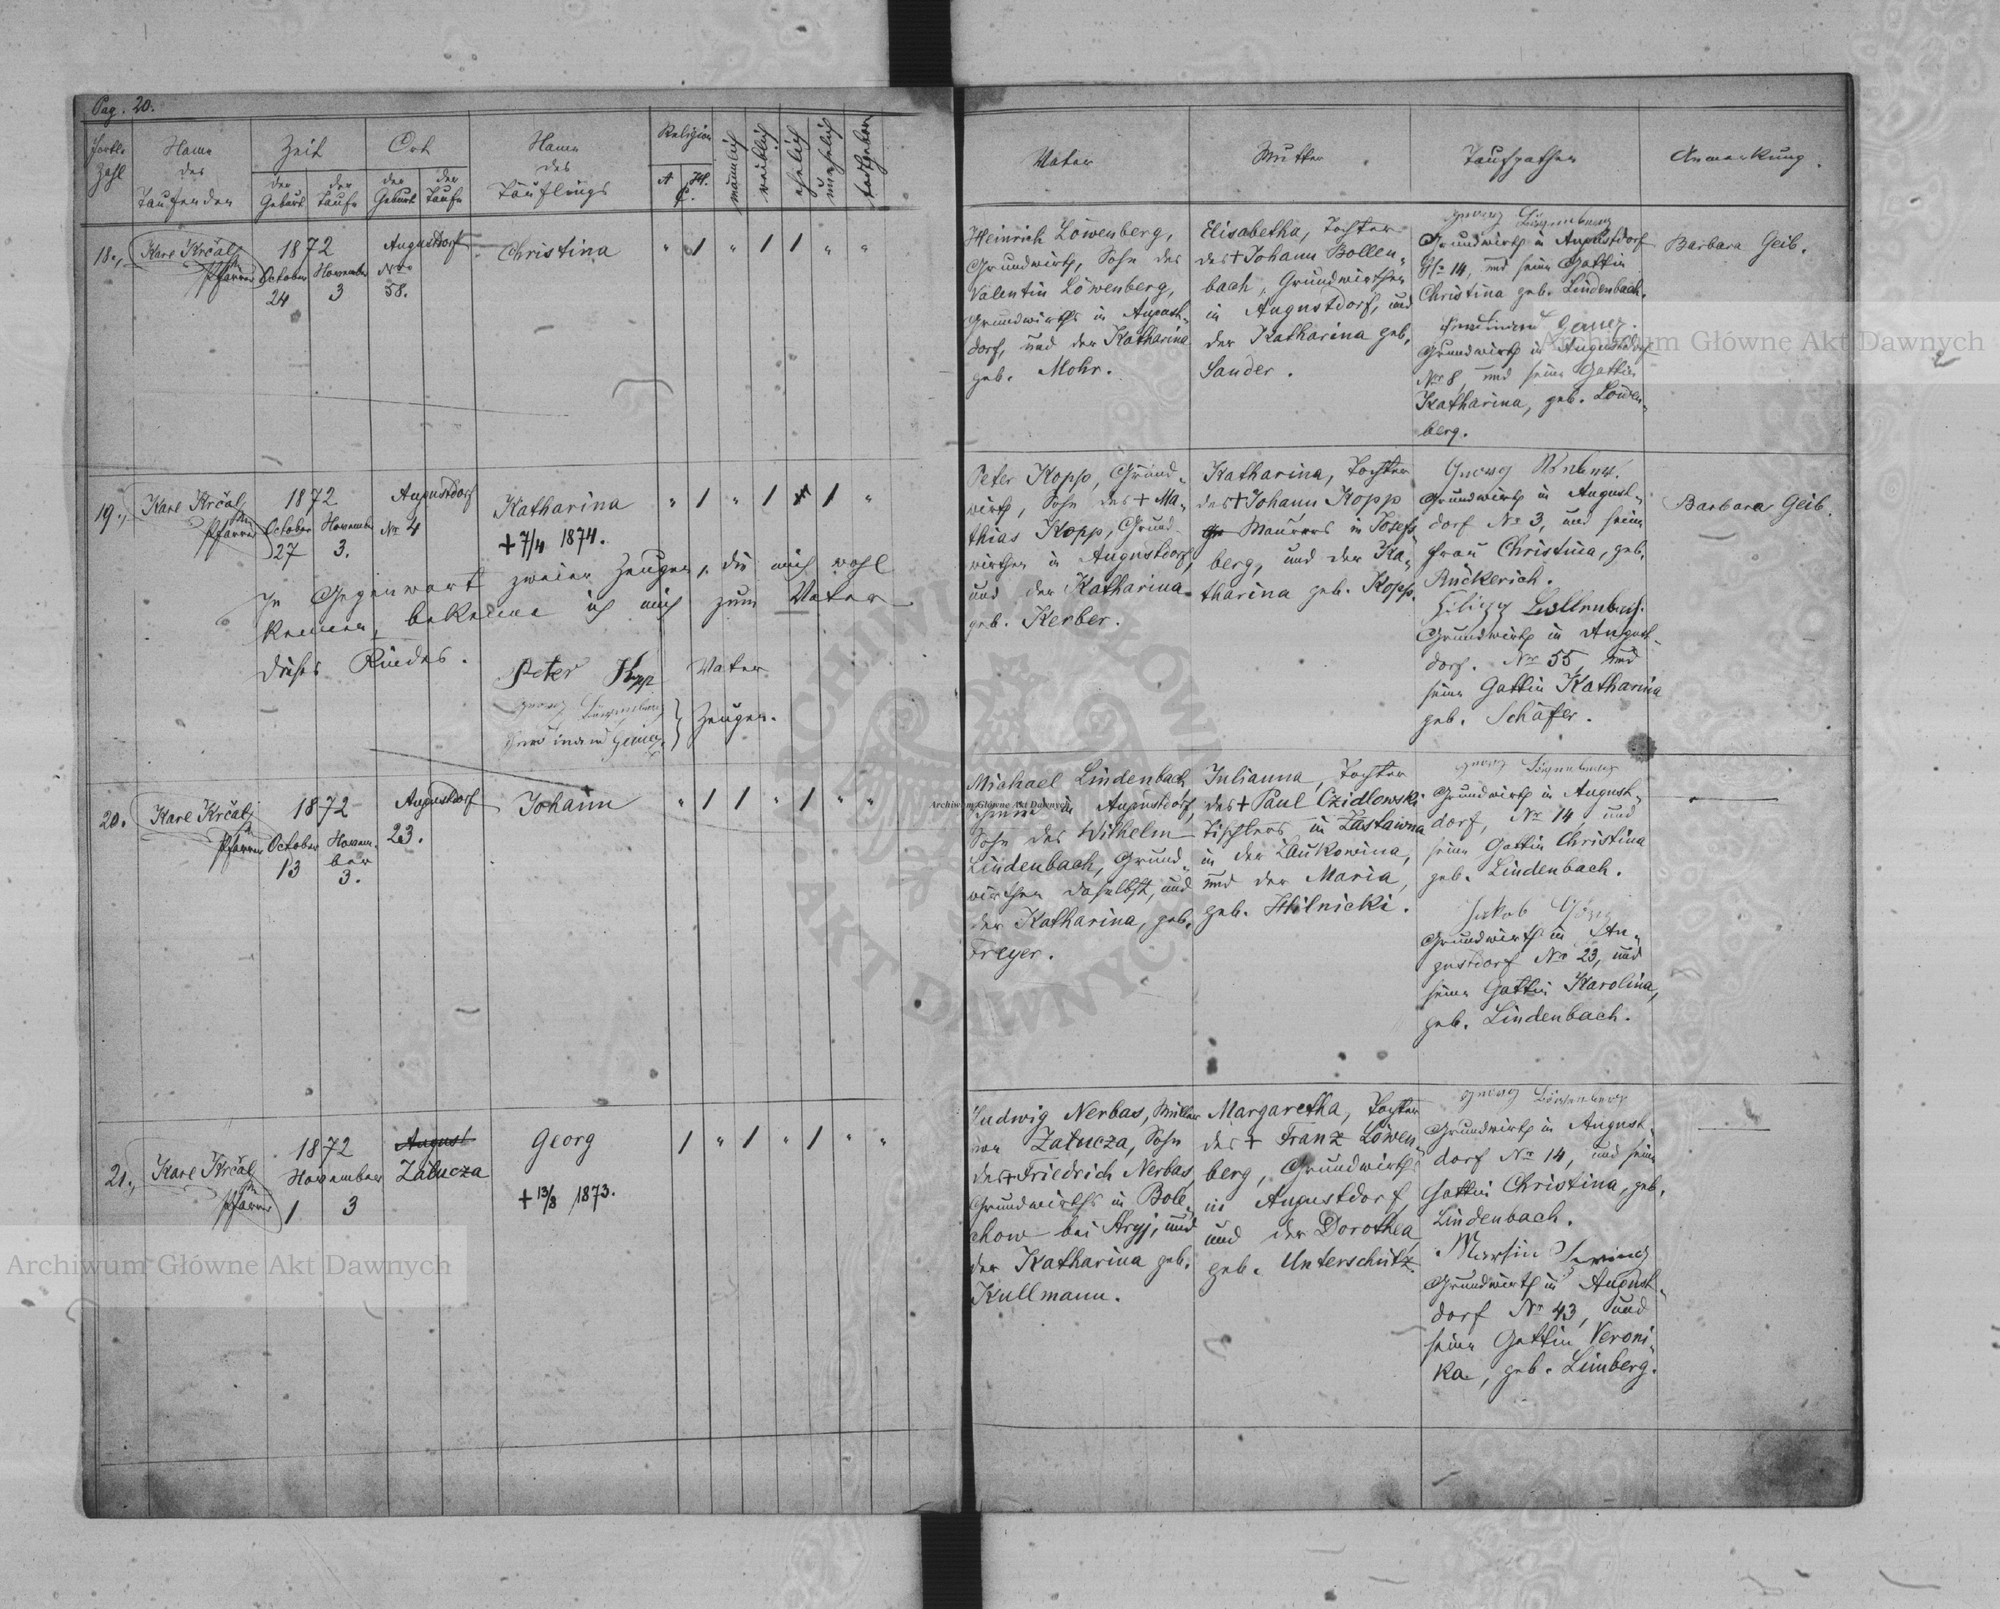 Pag. 20.
Fortl. Zahl
Name des Taufenden
Zeit
der Geburt
der Taufe
Ort
der Geburt
der Taufe
Name des Täuflings
Religion
A C.
H.
männlich
weiblich
ehelich
unehelich
todtgeboren
Vater
Mutter
Taufpathen
Anmerkung.
18.,
Karl Krčal
Pfarrer
1872
October
24
November
3
Augustdorf
Nro
58.
Christina
" / " / / " "
Heinrich Löwenberg,
Grundwirth, Sohn des
Valentin Löwenberg,
Grundwirths in August-
dorf, und der Katharina
geb. Mohr.
Elisabetha, Tochter
des + Johann Bollen-
bach, Grundwirthen
in Augustdorf, und
der Katharina geb.
Sander.
Georg Löwenberg
Grundwirth in Augustdorf
No 14, und seine Gattin
Christina geb. Lindenbach.
Ferdinand
Grundwirth in Augustdorf
Nro 8, und seine Gattin
Katharina, geb. Löwen-
berg.
Barbara Geib.
19.,
Karl Krčal
Pfarrer
1872
October
27
November
3.
Augustdorf
Nr 4
Katharina
+ 7/4 1874.
" / " / / "
In Gegenwart zweier Zeugen, die mich wohl
kennen, bekenne ich mich zum Vater
dieses Kindes.
Peter Kopp Vater
Georg Löwenberg
Ferdinand
} Zeugen.
Peter Kopp, Grund-
wirth, Sohn des + Ma-
thias Kopp, Grund-
wirthen in Augustdorf,
und der Katharina
geb. Kerber.
Katharina, Tochter
des + Johann Kopp
Maurers in Josefs-
berg, und der Ka-
tharina geb. Kopp.
Georg
Grundwirth in August-
dorf No 3, und seine
Frau Christina, geb.
Rückerich.
Filipp Bollenbach.
Grundwirth in August-
dorf. Nr 55, und
seine Gattin Katharina
geb. Schäfer.
Barbara Geib.
20.
Karl Krčal
Pfarrer
1872
October
13
Novem-
ber
3.
Augustdorf
23.
Johann
" / / " / " "
Michael Lindenbach,
in Augustdorf,
Sohn des Wilhelm
Lindenbach, Grund-
wirthen daselbst, und
der Katharina, geb.
Freyer.
Julianna, Tochter
des + Paul Czidlowski
Tischlers in Zastawna
in der Bukowina,
und der Maria,
geb. Hilnicki.
Georg Löwenberg
Grundwirth in August-
dorf, Nr 14, und
seine Gattin Christina
geb. Lindenbach.
Jakob
Grundwirth in Au-
gustdorf Nro 23, und
seine Gattin Karolina,
geb. Lindenbach.
21.,
Karl Krčal
Pfarrer
1872
November
1 3
August
Załucza
Georg
+ 13/8 1873.
/ " / " / " "
Ludwig Nerbas, Müller
von Załucza, Sohn
des + Friedrich Nerbas,
Grundwirths in Bole-
chow bei Stryj, und
der Katharina geb.
Kullmann.
Margaretha, Tochter
des + Franz Löwen-
berg, Grundwirths
in Augustdorf,
und der Dorothea,
geb. Unterschütz.
Georg Löwenberg
Grundwirth in August-
dorf Nr 14, und seine
Gattin Christina, geb.
Lindenbach.
Martin
Grundwirth in August-
dorf Nr 43, und
seine Gattin Veroni-
ka, geb. Limberg.
Archiwum Główne Akt Dawnych
Archiwum Główne Akt Dawnych
Archiwum Główne Akt Dawnych
ARCHIWUM GŁÓWNE AKT DAWNYCH